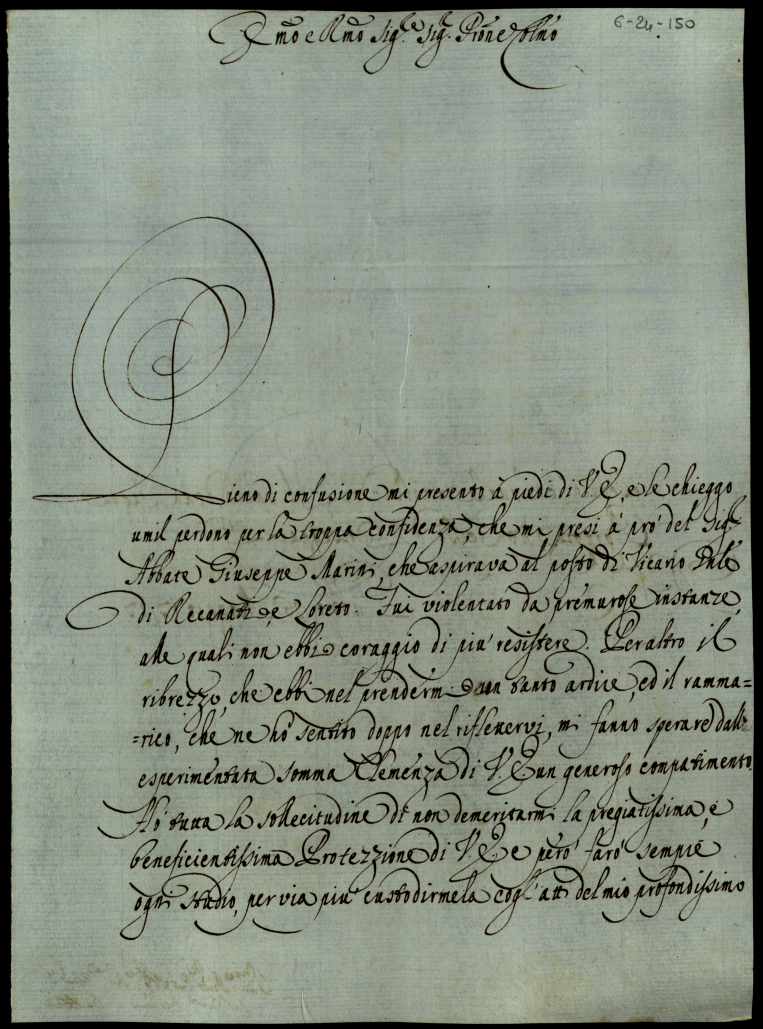 6-24-150
Emo e Rmo Sig.re Sig. Prone Colmo
Pieno di confusione mi presento à piedi di V. E., e le chieggo
umil perdono per la troppa confidenza, che mi presi à pro' del Sig.r
Abbate Giuseppe Marini, che aspirava al posto di Vicario Gnle
di Recanati, e Loreto. Fui violentato da premurose instanze,
alle quali non ebbi coraggio di piu' resistere. Peraltro il
ribrezzo, che ebbi nel prendermi un tanto ardire, ed il ramma=
=rico, che ne ho' sentito doppo nel riflettervi, mi fanno sperare dall'
esperimentata somma Clemenza di V. E. un generoso compatimento.
Hò tutta la sollecitudine di non demeritarmi la pregiatissima, e
beneficientissima Protezzione di V. E., e però farò sempre
ogni studio, per via piu' custodirmela cogl' atti del mio profondissimo